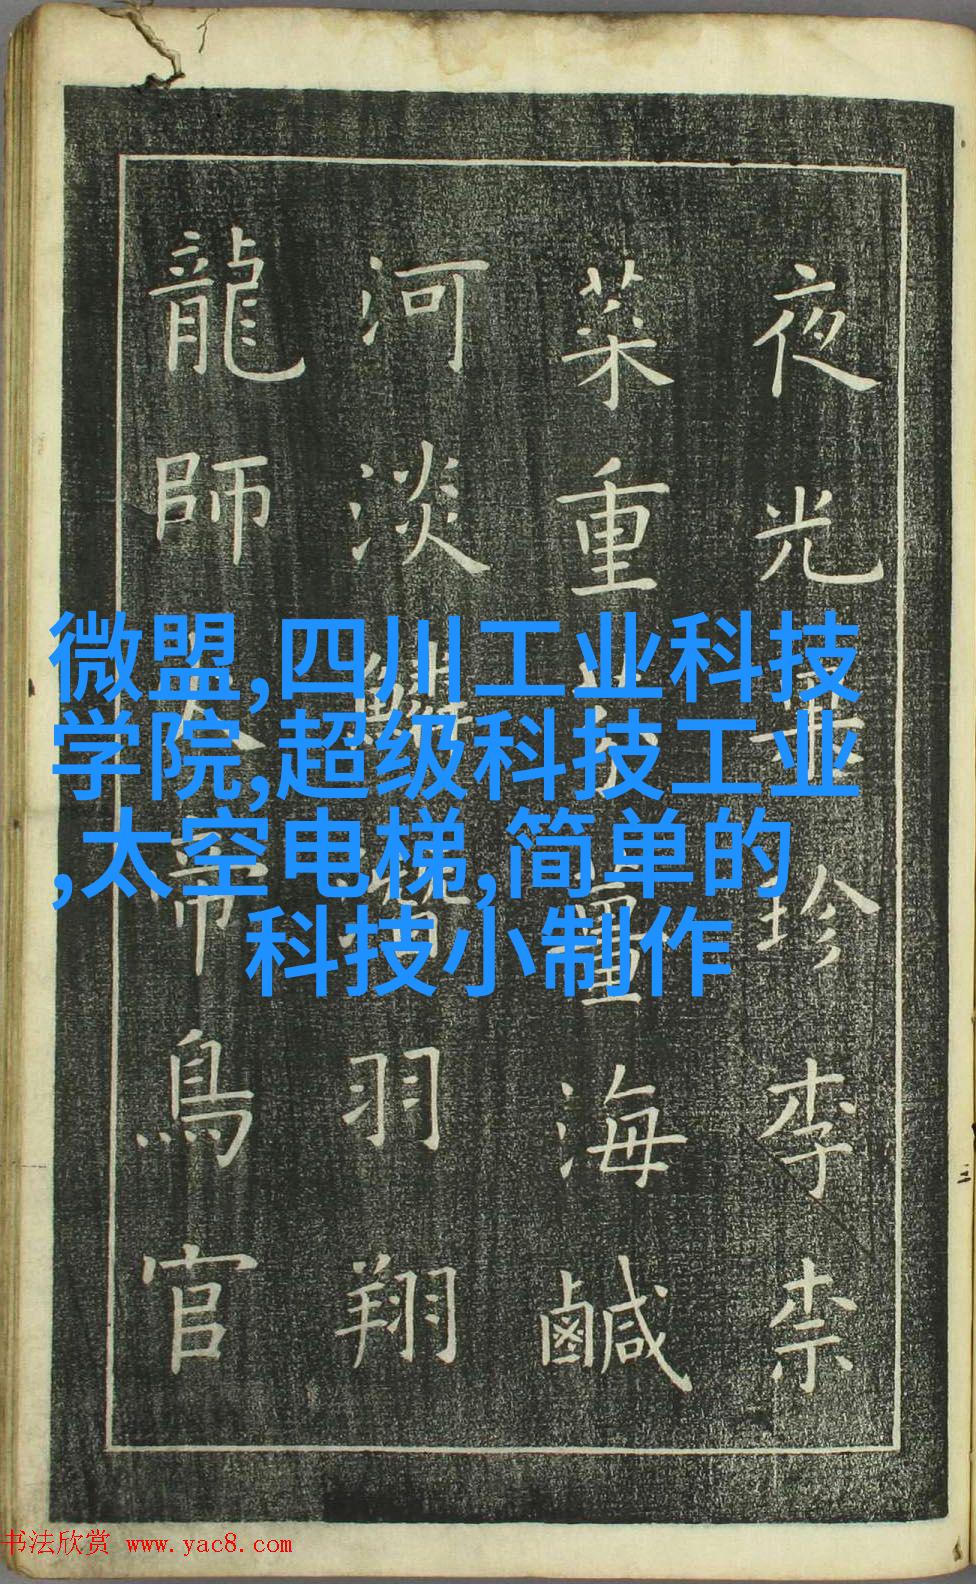 夜光珍李柰
菜重芥薑海鹹
河淡鱗潛羽翔
龍師火帝鳥官
微盟,四川工业科技
学院,超级科技工业
,太空电梯,简单的
科技小制作
书法欣赏 www.yac8.com